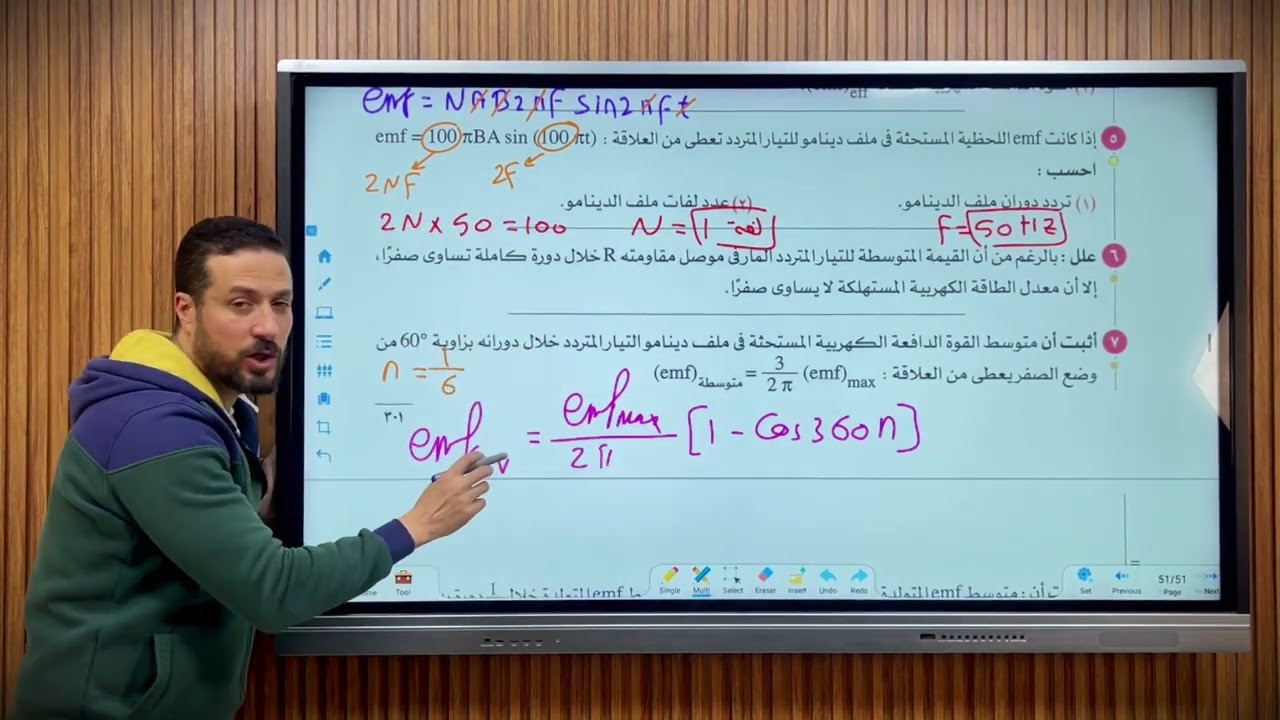 emf = NAB2πF sin2πFt
٥ إذا كانت emf اللحظية المستحثة فى ملف دينامو للتيار المتردد تعطى من العلاقة : emf = 100 πBA sin (100 πt)
احسب :
2NF 2F
(١) تردد دوران ملف الدينامو. (٢) عدد لفات ملف الدينامو.
F = 50 HZ N = 1 لفة 2N × 50 = 100
٦ علل : بالرغم من أن القيمة المتوسطة للتيار المتردد المار فى موصل مقاومته R خلال دورة كاملة تساوى صفرًا،
إلا أن معدل الطاقة الكهربية المستهلكة لا يساوى صفرًا.
٧ أثبت أن متوسط القوة الدافعة الكهربية المستحثة فى ملف دينامو التيار المتردد خلال دورانه بزاوية 60° من
وضع الصفر يعطى من العلاقة : (emf)متوسطة = 3/2π (emf)max
n = 1/6
٣٠١
emf = emfmax/2π [1 - Cos360n]
Tool Single Multi Select Eraser Insert Undo Redo Set Previous 51/51 Page Next